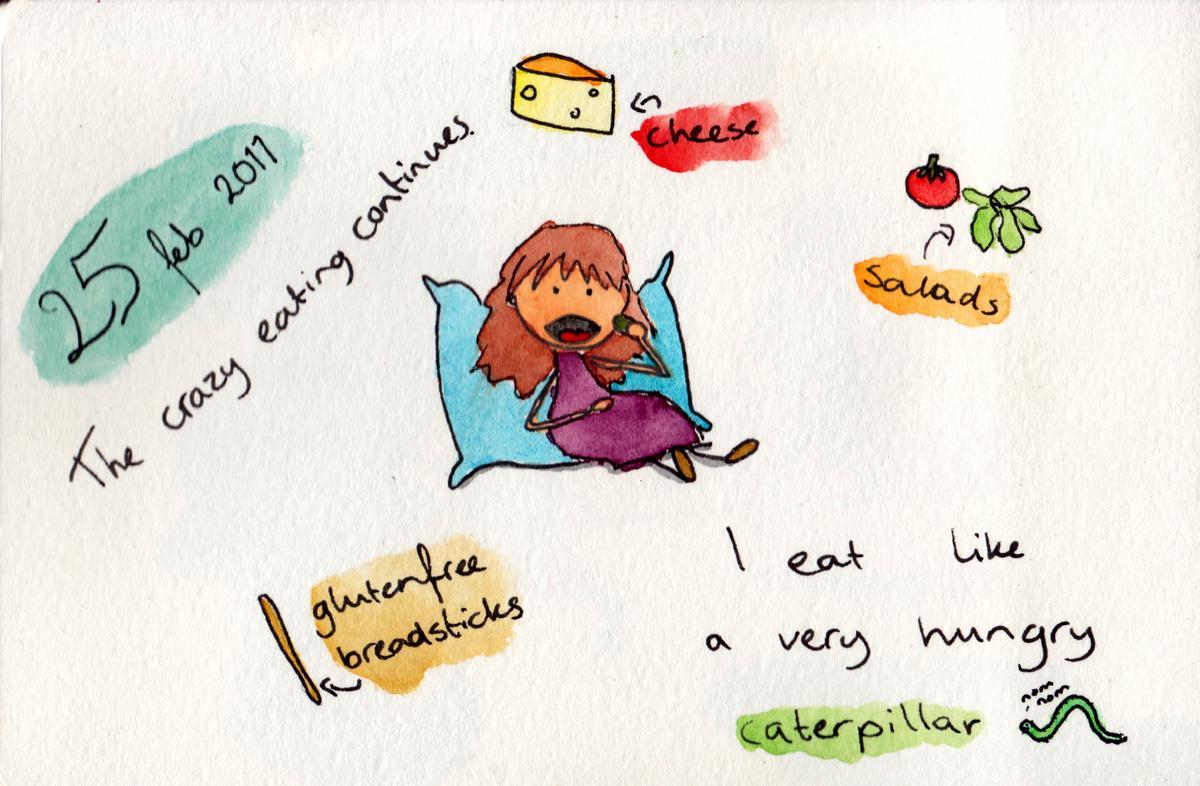 25 feb 2011
The crazy eating continues.
cheese
Salads
glutenfree
breadsticks
I eat like
a very hungry
caterpillar
nom nom
nom